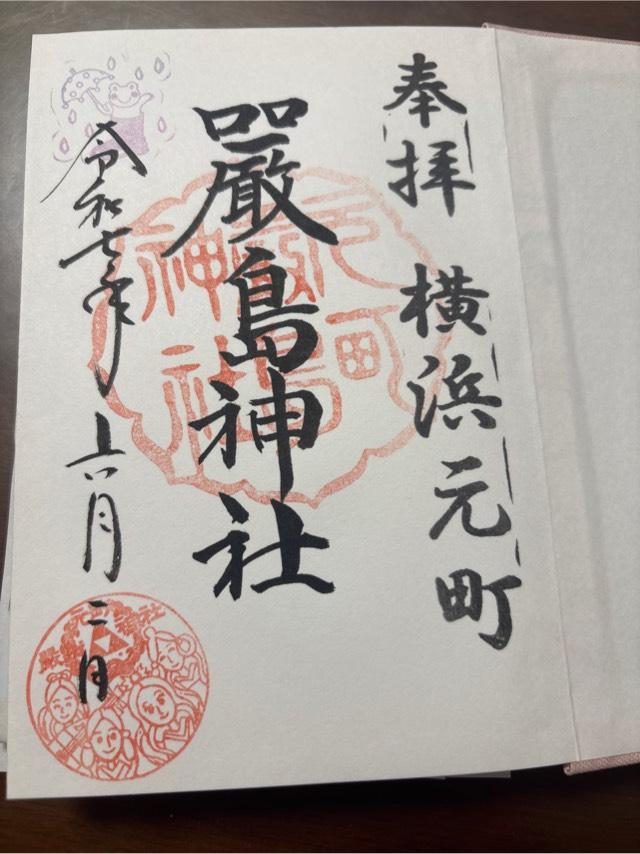 奉拝 横浜元町
嚴島神社
令和七年 六月 二日
元町
嚴島
神社